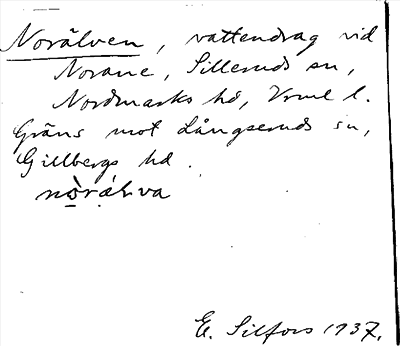 Norälven, vattendrag vid
Norane, Silleruds sn,
Nordmarks hd, Vrml l.
Gräns mot Långseruds sn,
Gillbergs hd.
El. Silfors 1937.